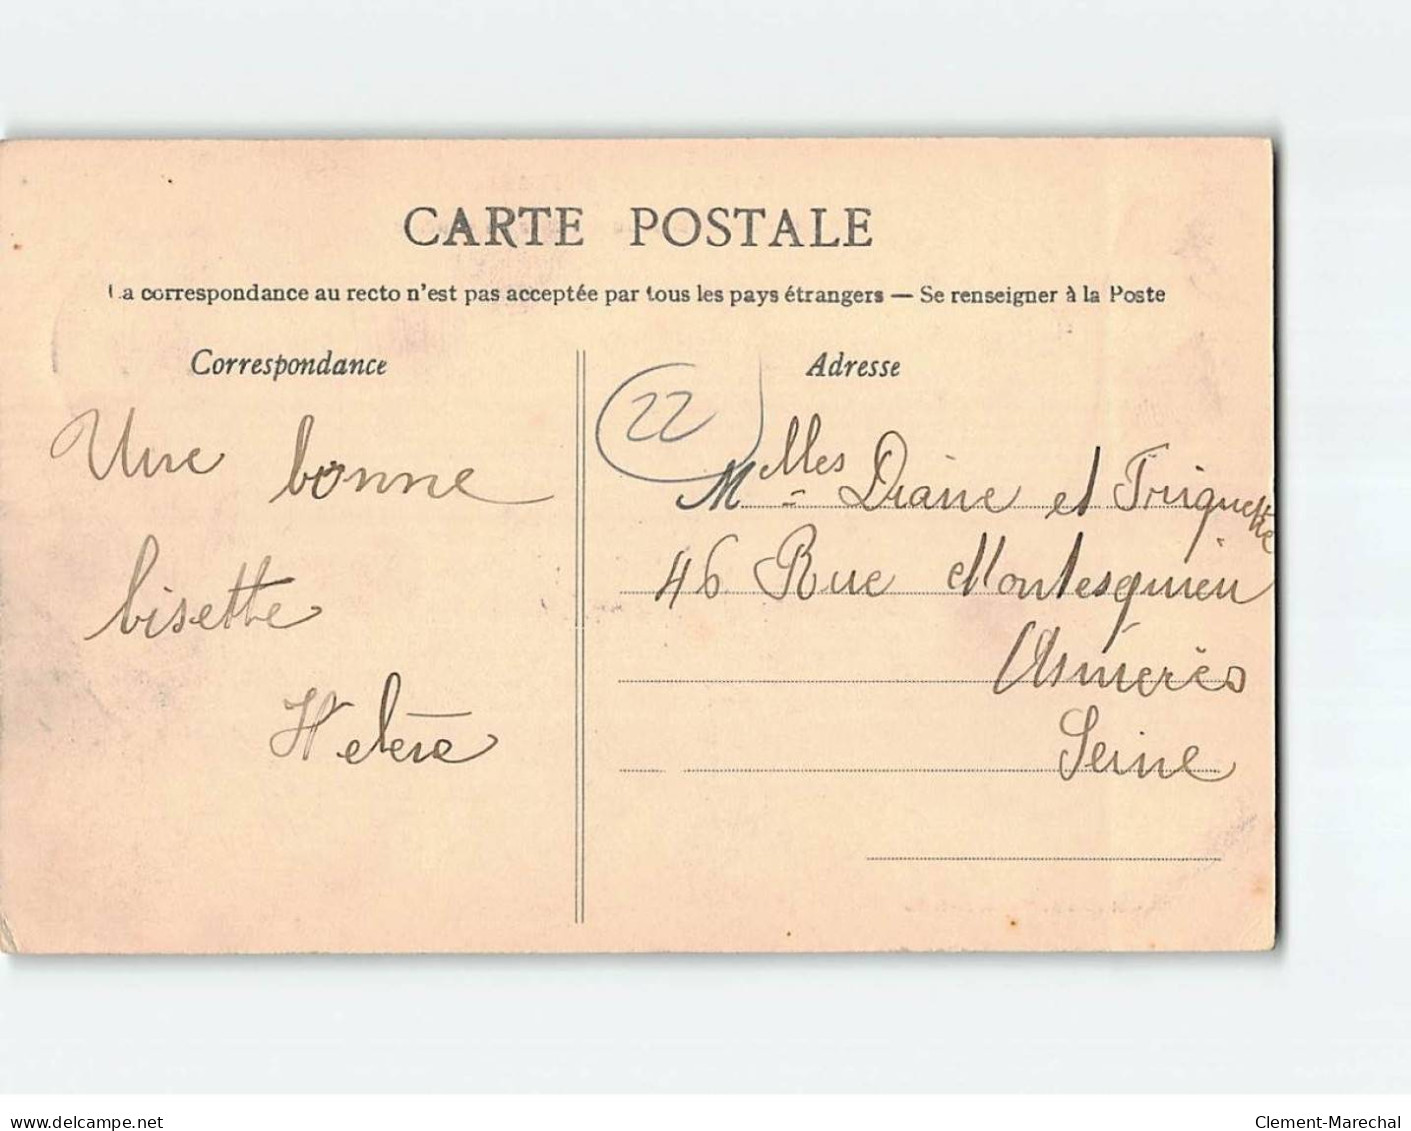 CARTE POSTALE
La correspondance au recto n'est pas acceptée par tous les pays étrangers — Se renseigner à la Poste
Correspondance
Une bonne
bisette
Helène
Adresse
22
Mlles Diane et Triquette
46 Rue Montesquieu
Asnières
Seine
www.delcampe.net
Clement-Marechal